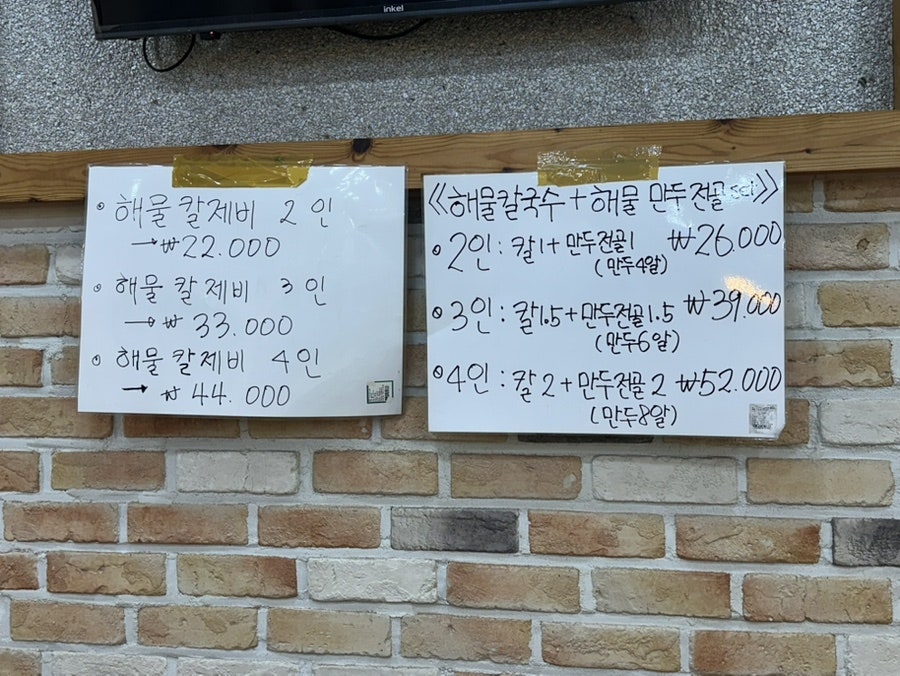 inkel
해물 칼제비 2인
→₩22.000
해물 칼제비 3인
→₩ 33.000
해물 칼제비 4인
→ ₩ 44.000
《해물칼국수+해물 만두전골》
2인: 칼1+만두전골1 ₩26.000
(만두4알)
3인: 칼1.5+만두전골1.5 ₩39.000
(만두6알)
4인: 칼2+만두전골2 ₩52.000
(만두8알)